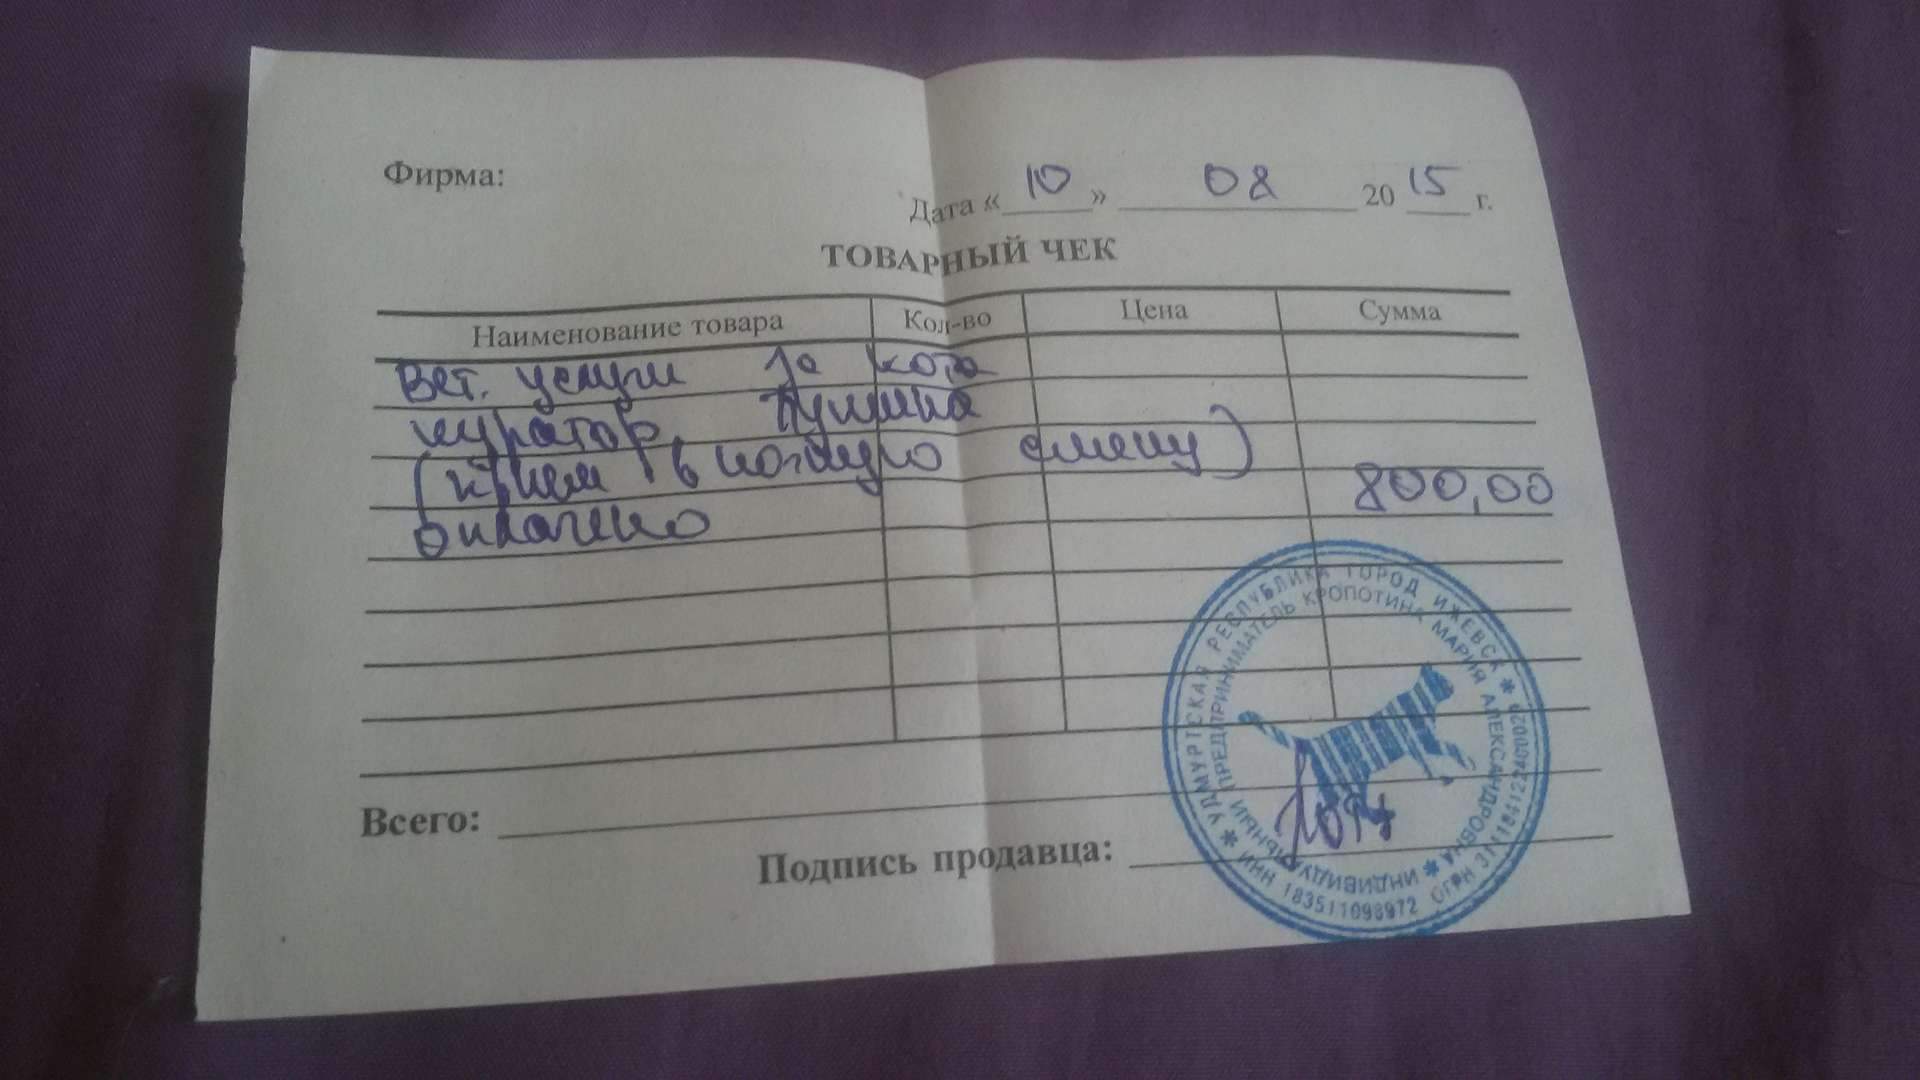 Фирма:
Дата «10» 08 2015 г.
ТОВАРНЫЙ ЧЕК
Наименование товара Кол-во Цена Сумма
Вет. услуги за кота
куратор
(прием в ночную смену)
оплачено 800,00
Всего:
Подпись продавца:
УДМУРТСКАЯ РЕСПУБЛИКА ГОРОД ИЖЕВСК
ИНДИВИДУАЛЬНЫЙ ПРЕДПРИНИМАТЕЛЬ КРОПОТИНА МАРИЯ АЛЕКСАНДРОВНА
ИНН 183511098972 ОГРН